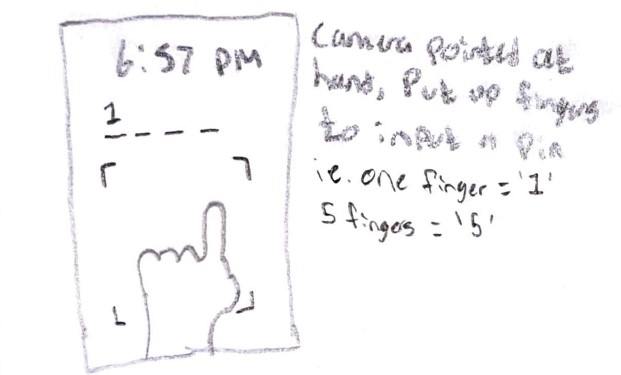 6:57 PM
1
Camera pointed at
hand, Put up fingers
to input a Pin
i.e. one finger = '1'
5 fingers = '5'